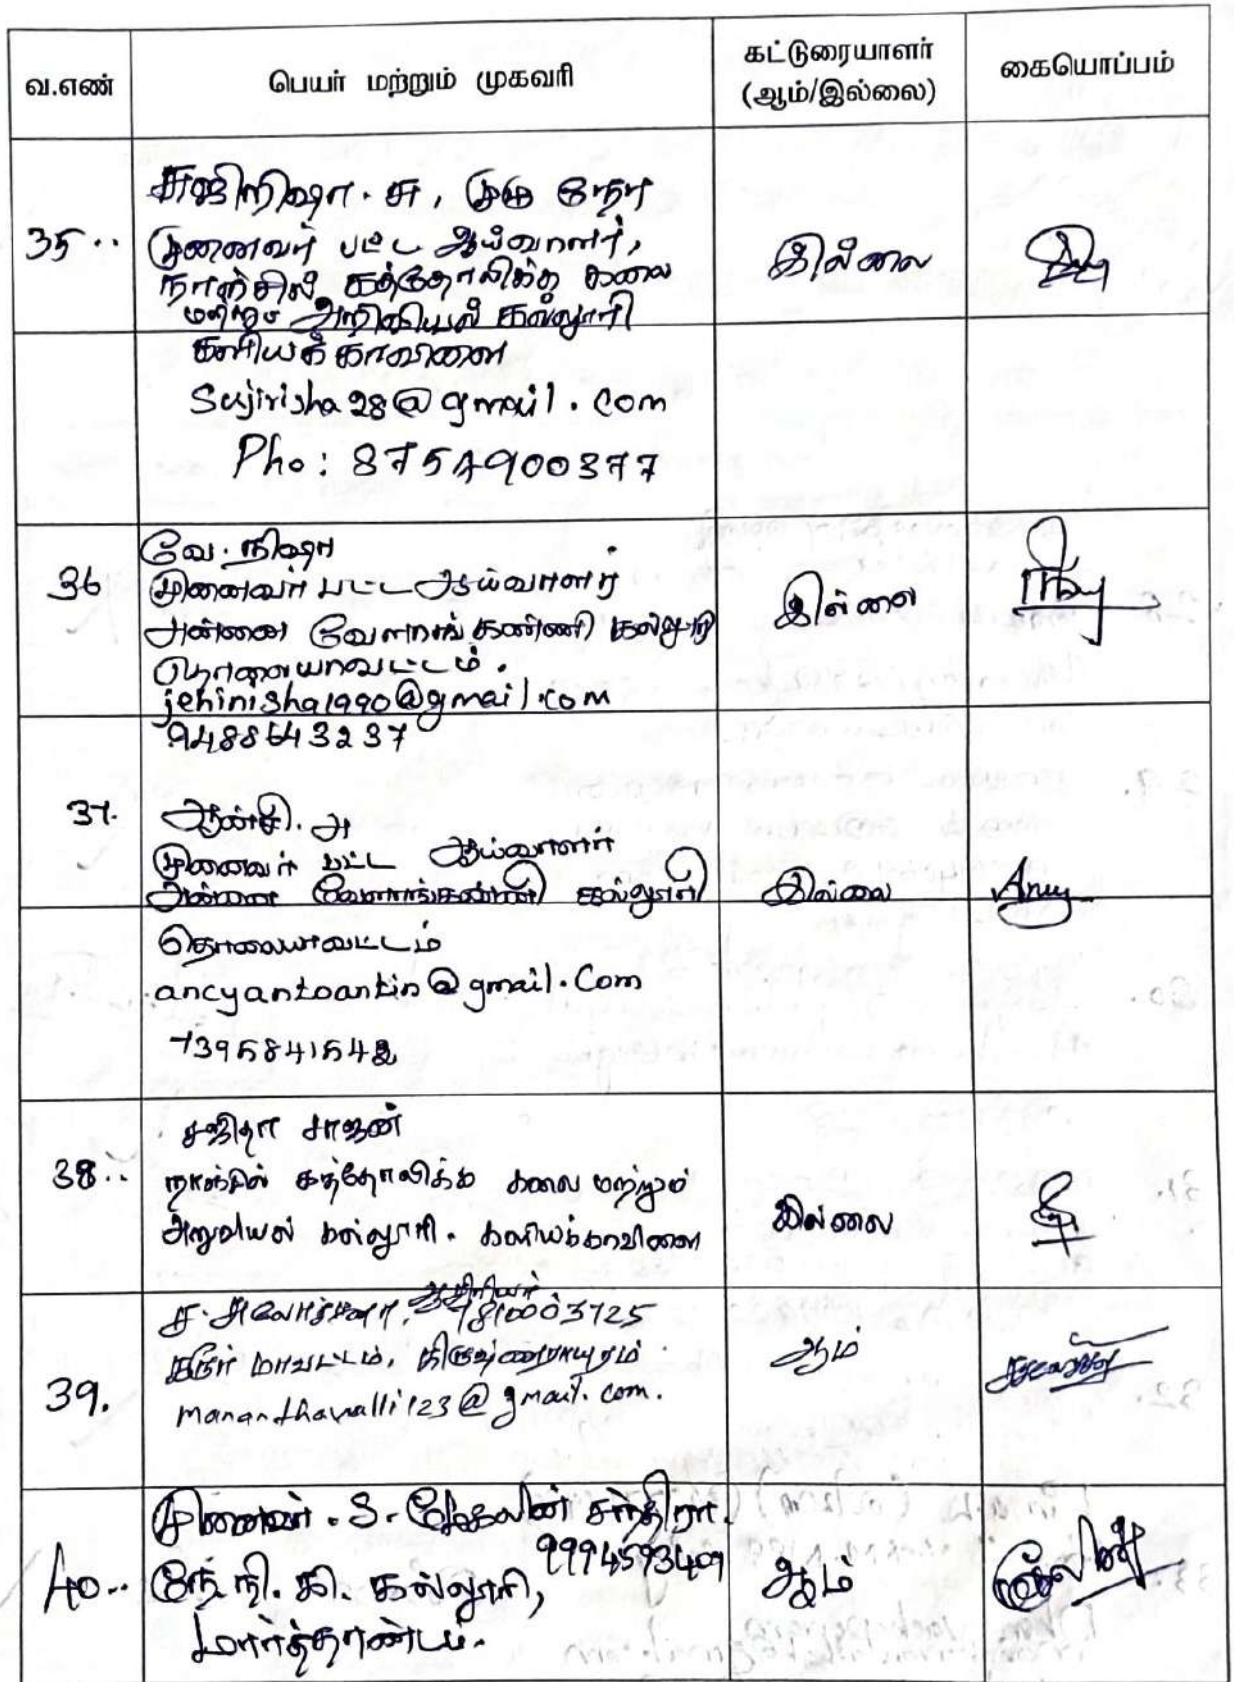 வ.எண் பெயர் மற்றும் முகவரி கட்டுரையாளர் (ஆம்/இல்லை) கையொப்பம்
35.. சுஜிரிஷா. சு, முழு நேர
முனைவர் பட்ட ஆய்வாளர்,
நாஞ்சில் கத்தோலிக்க கலை இல்லை
மற்றும் அறிவியல் கல்லூரி
களியக்காவிளை
Sujirisha28@gmail.com
Pho: 8754900377
வே. நிஷா
36 முனைவர் பட்ட ஆய்வாளர் இல்லை
அன்னை வேளாங்கண்ணி கல்லூரி
தொலையாவட்டம்.
jehinisha1990@gmail.com
9488643237
37. ஆன்சி. அ
முனைவர் பட்ட ஆய்வாளர்
அன்னை வேளாங்கண்ணி கல்லூரி இல்லை Ancy
தொலையாவட்டம்
ancyantoantin@gmail.com
7395841542
சஜிதா சாஜன்
38.. நாஞ்சில் கத்தோலிக்க கலை மற்றும்
அறுவியல் கல்லூரி. களியக்காவிளை இல்லை
ஆசிரியர்
ச. சுலோச்சனா, 9810003725
கரூர் மாவட்டம், கிருஷ்ணராயபுரம் ஆம்
39. mananthavalli123@gmail.com.
முனைவர். S. ஜெகலின் சந்திரா.
9994593409
40.. நே. நி. கி. கல்லூரி, ஆம்
மார்த்தாண்டம்.